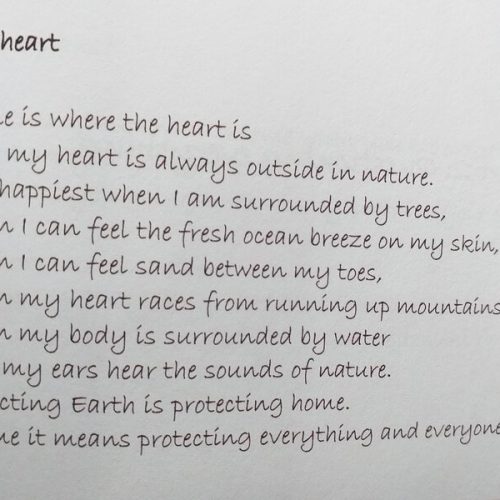 heart
e is where the heart is
my heart is always outside in nature.
happiest when I am surrounded by trees,
n I can feel the fresh ocean breeze on my skin,
n I can feel sand between my toes,
n my heart races from running up mountains
n my body is surrounded by water
my ears hear the sounds of nature.
cting Earth is protecting home.
me it means protecting everything and everyone